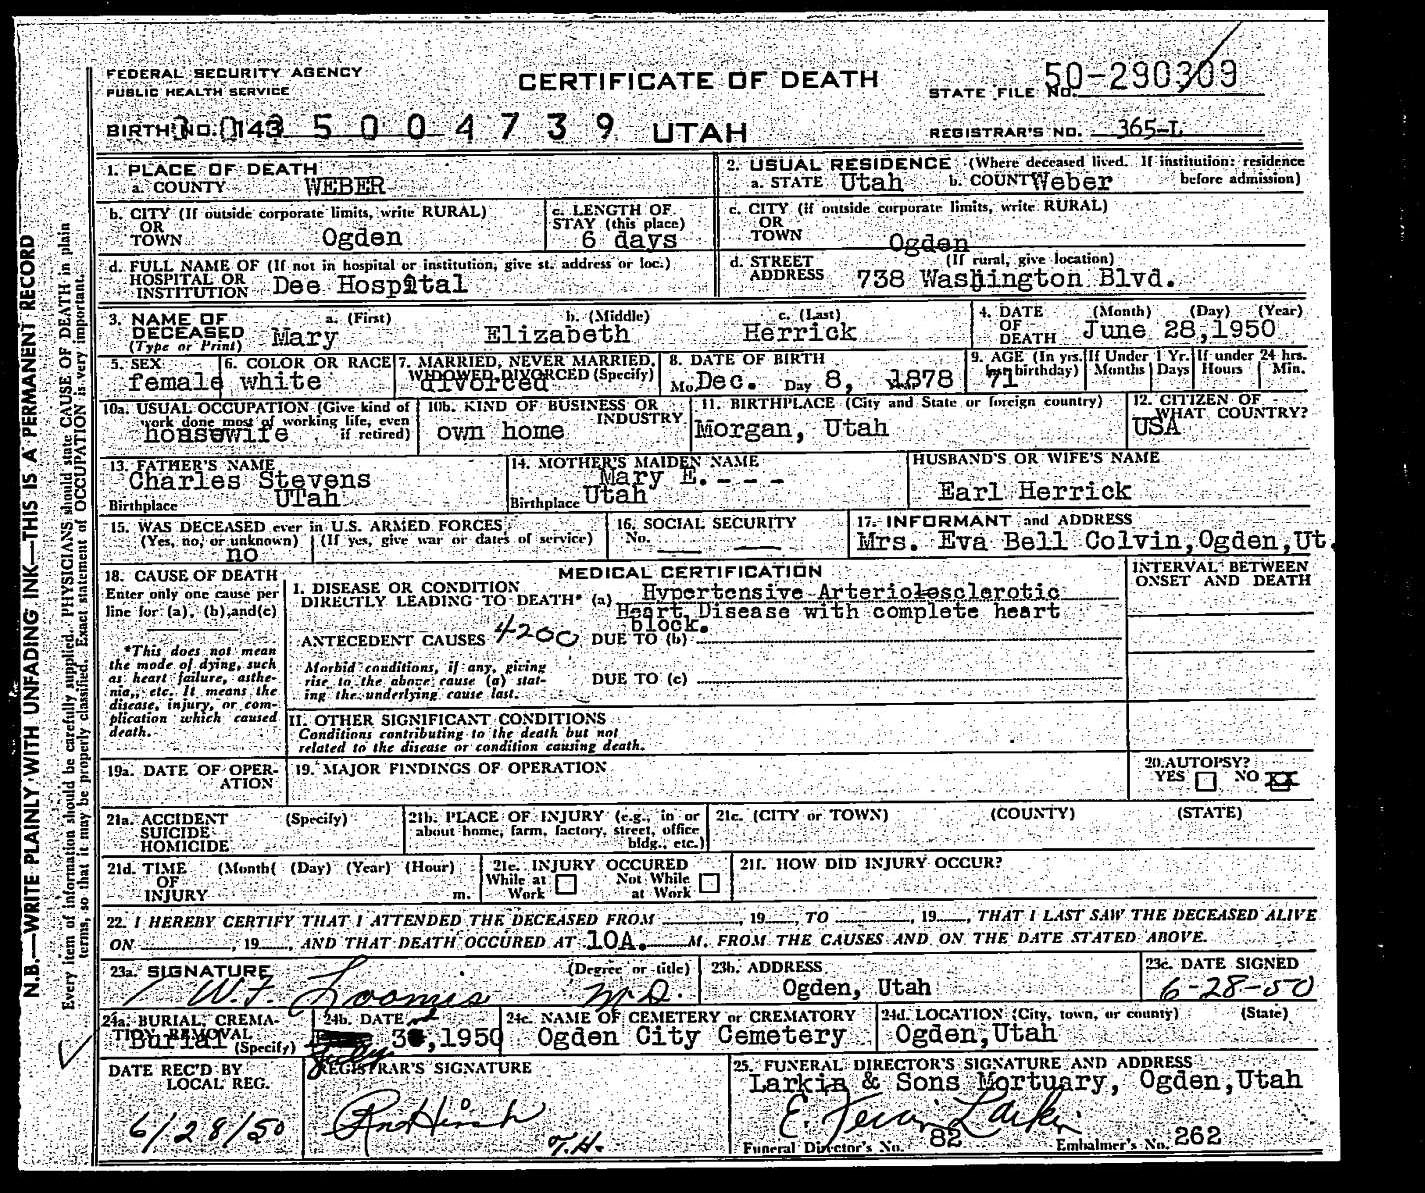 FEDERAL SECURITY AGENCY
PUBLIC HEALTH SERVICE
CERTIFICATE OF DEATH
STATE FILE NO. 50-290309
BIRTH NO. 143 5004739 UTAH
REGISTRAR'S NO. 365-L
1. PLACE OF DEATH
a. COUNTY WEBER
2. USUAL RESIDENCE (Where deceased lived. If institution: residence before admission)
a. STATE Utah b. COUNTY Weber
b. CITY (If outside corporate limits, write RURAL)
OR
TOWN Ogden
c. LENGTH OF
STAY (this place)
6 days
c. CITY (if outside corporate limits, write RURAL)
OR
TOWN Ogden
d. FULL NAME OF (If not in hospital or institution, give st. address or loc.)
HOSPITAL OR
INSTITUTION Dee Hospital
d. STREET (If rural, give location)
ADDRESS 738 Washington Blvd.
3. NAME OF a. (First) b. (Middle) c. (Last)
DECEASED Mary Elizabeth Herrick
(Type or Print)
4. DATE (Month) (Day) (Year)
OF
DEATH June 28,1950
5. SEX
female
6. COLOR OR RACE
white
7. MARRIED, NEVER MARRIED,
WIDOWED DIVORCED (Specify)
divorced
8. DATE OF BIRTH
Mo. Dec. Day 8, Year 1878
9. AGE (In yrs. last birthday) 71
If Under 1 Yr. Months Days
If under 24 hrs. Hours Min.
10a. USUAL OCCUPATION (Give kind of
work done most of working life, even
if retired)
housewife
10b. KIND OF BUSINESS OR
INDUSTRY
own home
11. BIRTHPLACE (City and State or foreign country)
Morgan, Utah
12. CITIZEN OF
WHAT COUNTRY?
USA
13. FATHER'S NAME
Charles Stevens
Birthplace UTah
14. MOTHER'S MAIDEN NAME
Mary E. - - -
Birthplace Utah
HUSBAND'S OR WIFE'S NAME
Earl Herrick
15. WAS DECEASED ever in U.S. ARMED FORCES
(Yes, no, or unknown) (If yes, give war or dates of service)
no
16. SOCIAL SECURITY
No. — —
17. INFORMANT and ADDRESS
Mrs. Eva Bell Colvin,Ogden,Ut.
18. CAUSE OF DEATH
Enter only one cause per
line for (a), (b), and(c)
*This does not mean
the mode of dying, such
as heart failure, asthe-
nia,, etc. It means the
disease, injury, or com-
plication which caused
death.
MEDICAL CERTIFICATION
I. DISEASE OR CONDITION
DIRECTLY LEADING TO DEATH* (a) Hypertensive Arteriolosclerotic
Heart Disease with complete heart
block.
ANTECEDENT CAUSES 4200 DUE TO (b)
Morbid conditions, if any, giving
rise to the above cause (a) stat-
ing the underlying cause last.
DUE TO (c)
II. OTHER SIGNIFICANT CONDITIONS
Conditions contributing to the death but not
related to the disease or condition causing death.
INTERVAL BETWEEN
ONSET AND DEATH
19a. DATE OF OPER-
ATION
19. MAJOR FINDINGS OF OPERATION
20. AUTOPSY?
YES NO XX
21a. ACCIDENT (Specify)
SUICIDE
HOMICIDE
21b. PLACE OF INJURY (e.g., in or
about home, farm, factory, street, office
bldg., etc.)
21c. (CITY or TOWN) (COUNTY) (STATE)
21d. TIME (Month( (Day) (Year) (Hour)
OF
INJURY m.
21e. INJURY OCCURED
While at Work Not While at Work
21f. HOW DID INJURY OCCUR?
22. I HEREBY CERTIFY THAT I ATTENDED THE DECEASED FROM , 19 , TO , 19 , THAT I LAST SAW THE DECEASED ALIVE
ON , 19 , AND THAT DEATH OCCURED AT 10A. M. FROM THE CAUSES AND ON THE DATE STATED ABOVE.
23a. SIGNATURE (Degree or title)
W.F. Loomis M.D.
23b. ADDRESS
Ogden, Utah
23c. DATE SIGNED
6-28-50
24a. BURIAL, CREMA-
TION, REMOVAL
(Specify)
Burial
24b. DATE
July 3,1950
24c. NAME OF CEMETERY or CREMATORY
Ogden City Cemetery
24d. LOCATION (City, town, or county) (State)
Ogden,Utah
DATE REC'D BY
LOCAL REG.
6/28/50
REGISTRAR'S SIGNATURE
25. FUNERAL DIRECTOR'S SIGNATURE AND ADDRESS
Larkin & Sons Mortuary, Ogden,Utah
Larkin
Funeral Director's No. 82 Embalmer's No. 262
N.B.—WRITE PLAINLY WITH UNFADING INK—THIS IS A PERMANENT RECORD
Every item of information should be carefully supplied. PHYSICIANS should state CAUSE OF DEATH in plain
terms, so that it may be properly classified. Exact statement of OCCUPATION is very important.